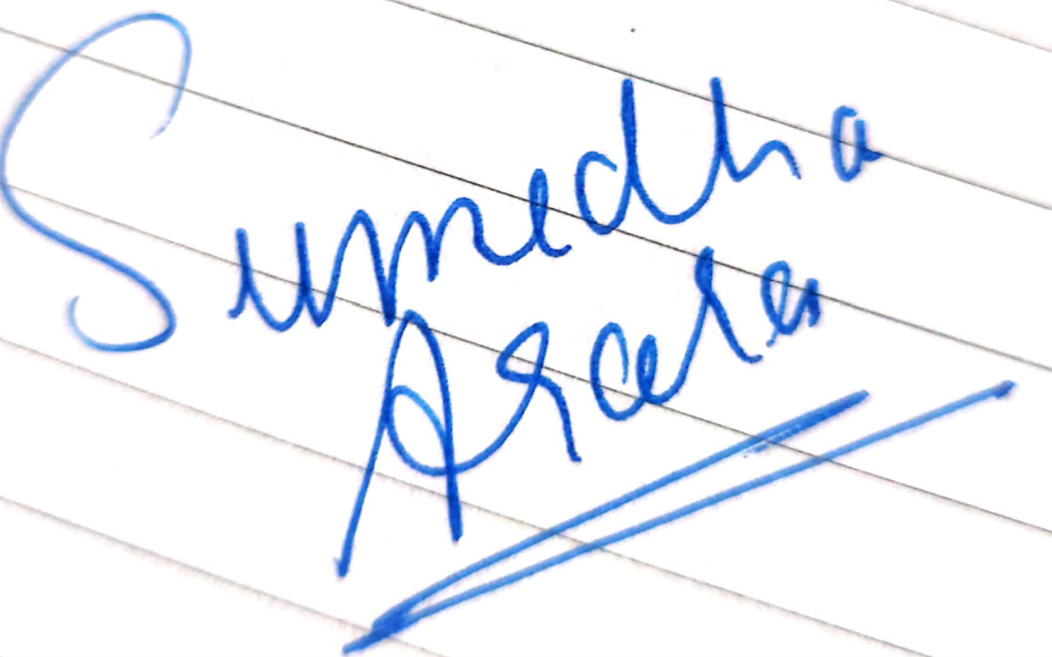 Sumedha
Arora